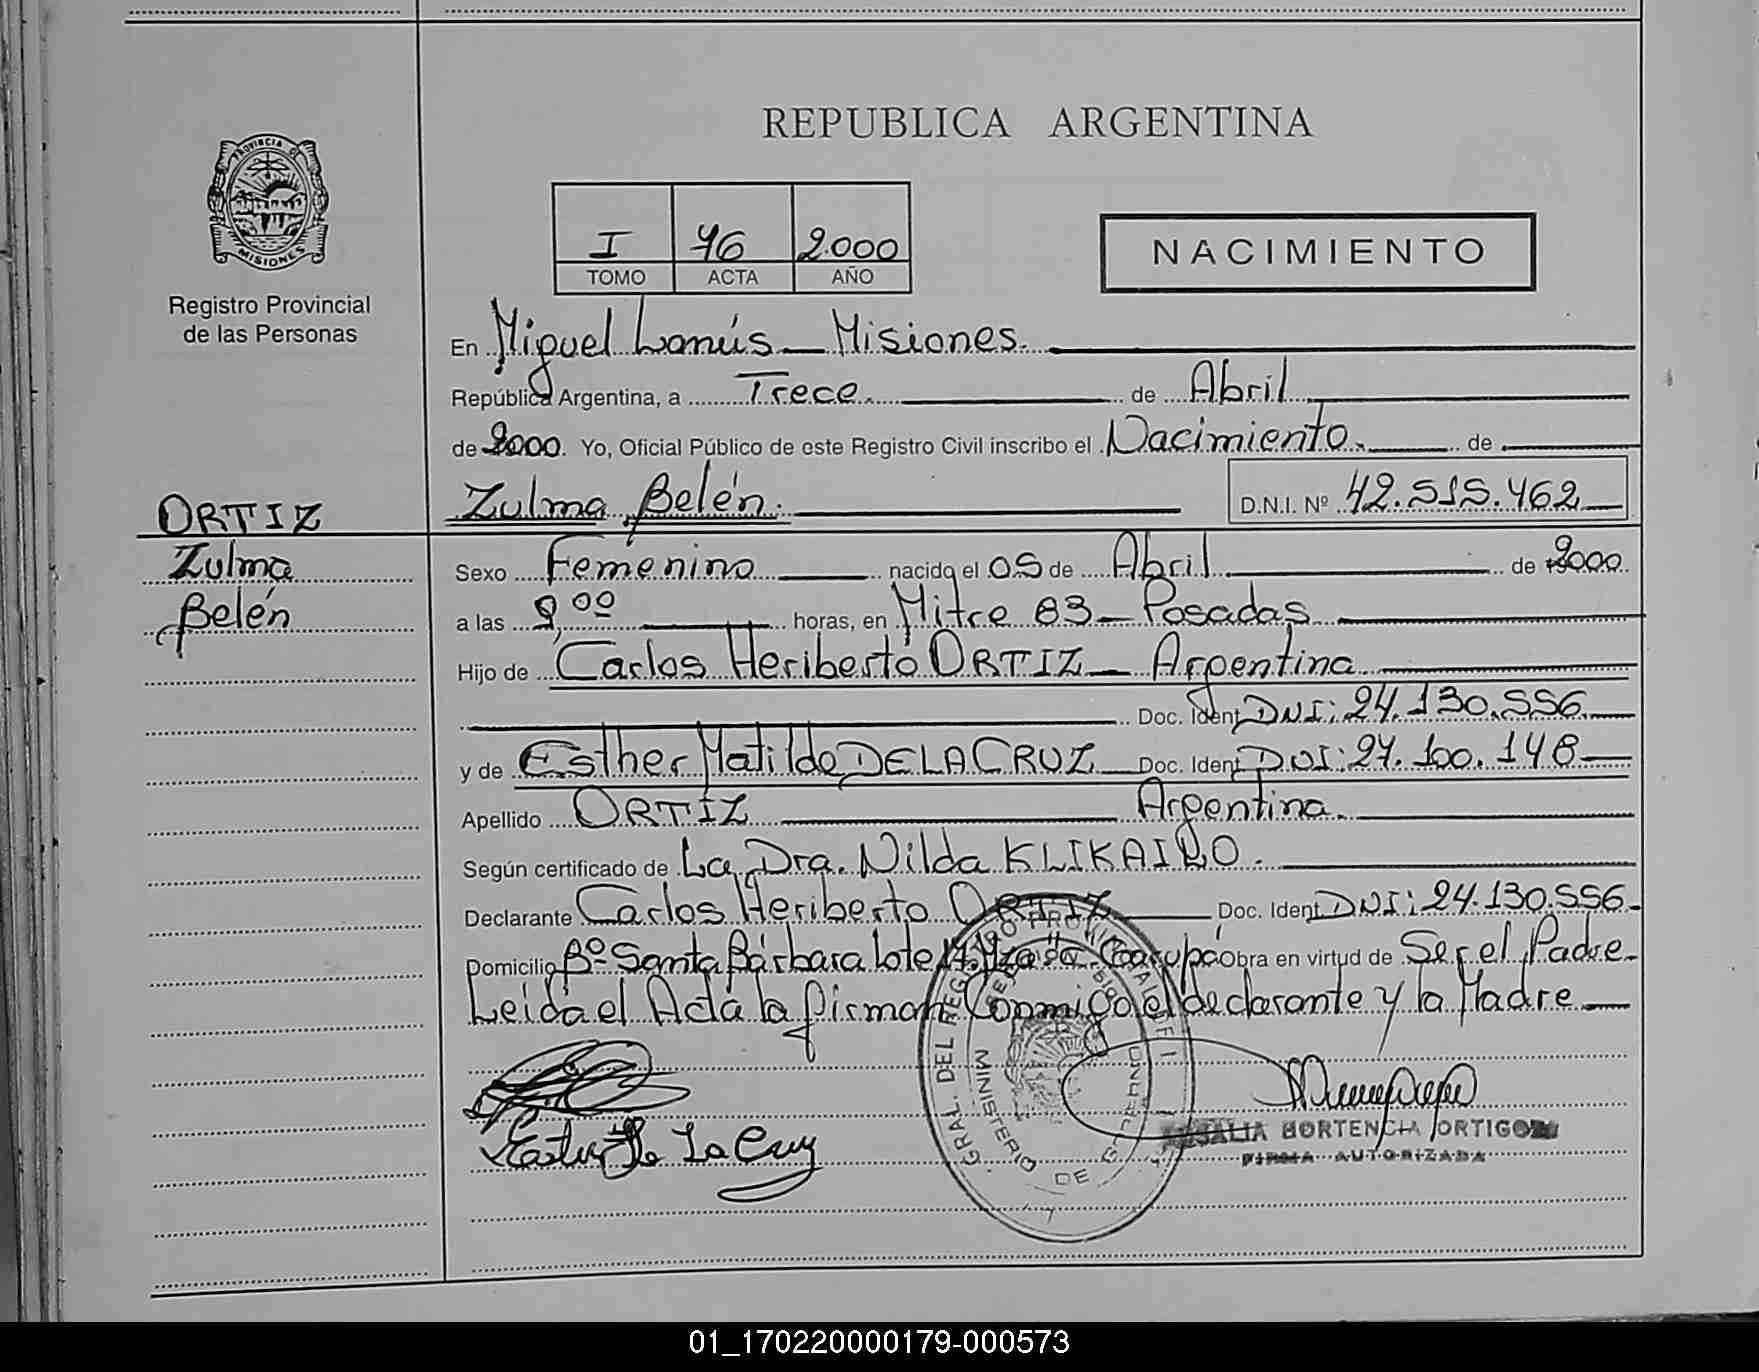 REPUBLICA ARGENTINA
PROVINCIA DE
MISIONES
Registro Provincial
de las Personas
I 76 2.000
TOMO ACTA AÑO
NACIMIENTO
En Miguel Lanús - Misiones.
República Argentina, a Trece. de Abril
de 2000. Yo, Oficial Público de este Registro Civil inscribo el Nacimiento. de
Zulma Belén. D.N.I. Nº 42.515.462
ORTIZ
Zulma
Belén
Sexo Femenino nacido el 05 de Abril de 2000
a las 9,00 horas, en Mitre 83 - Posadas
Hijo de Carlos Heriberto ORTIZ - Argentina
Doc. Ident DNI: 24.130.556
y de Esther Matilde DE LA CRUZ Doc. Ident DNI: 27.100.148
Apellido ORTIZ Argentina.
Según certificado de La Dra. Nilda
Declarante Carlos Heriberto ORTIZ Doc. Ident DNI: 24.130.556
Domicilio Bº Santa Bárbara Lote Obra en virtud de Ser el Padre
Leída el Acta la firman Conmigo el declarante y la Madre
GRAL. DEL REGISTRO PROVINCIAL
MINISTERIO DE GOBIERNO
Ester de La Cruz
HORTENCIA ORTIGOZA
FIRMA AUTORIZADA
01_170220000179-000573